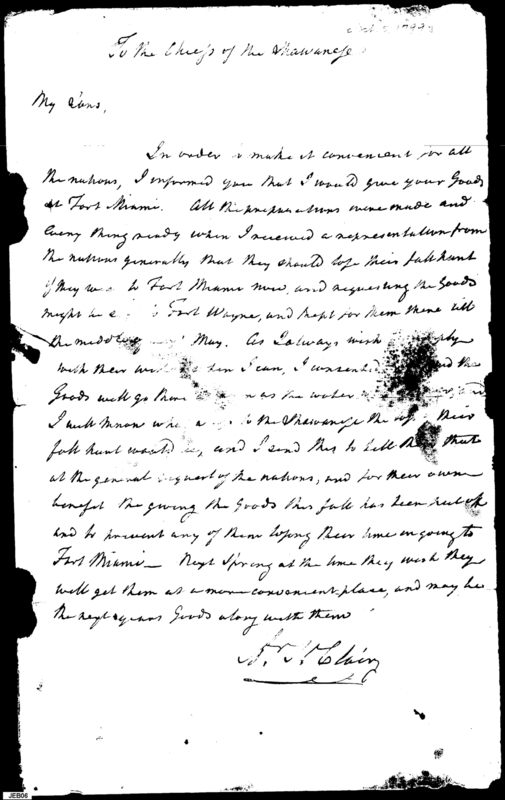 To the Chiefs of the Shawanese
My Sons,
In order to make it convenient for all
the nations, I informed you that I would give your Goods
at Fort Miami. All the preparations were made and
every thing ready when I received a representation from
the nations generally that they should lose their fall hunt
if they to Fort Miami now, and requesting the Goods
might be to Fort Wayne, and kept for them there till
the middle May. As I always wish
with their when I can, I consented the
Goods will go there as the water
I well know to the Shawanese the their
fall hunt would and I send this to tell them that
at the general request of the nations, and for their own
benefit the giving the Goods this fall has been put off
and to prevent any of them losing their time in going to
Fort Miami— Next Spring at the time they wish they
will get them at a more convenient place, and may be
the next years Goods along with them
Ar. St. Clair
JEB06